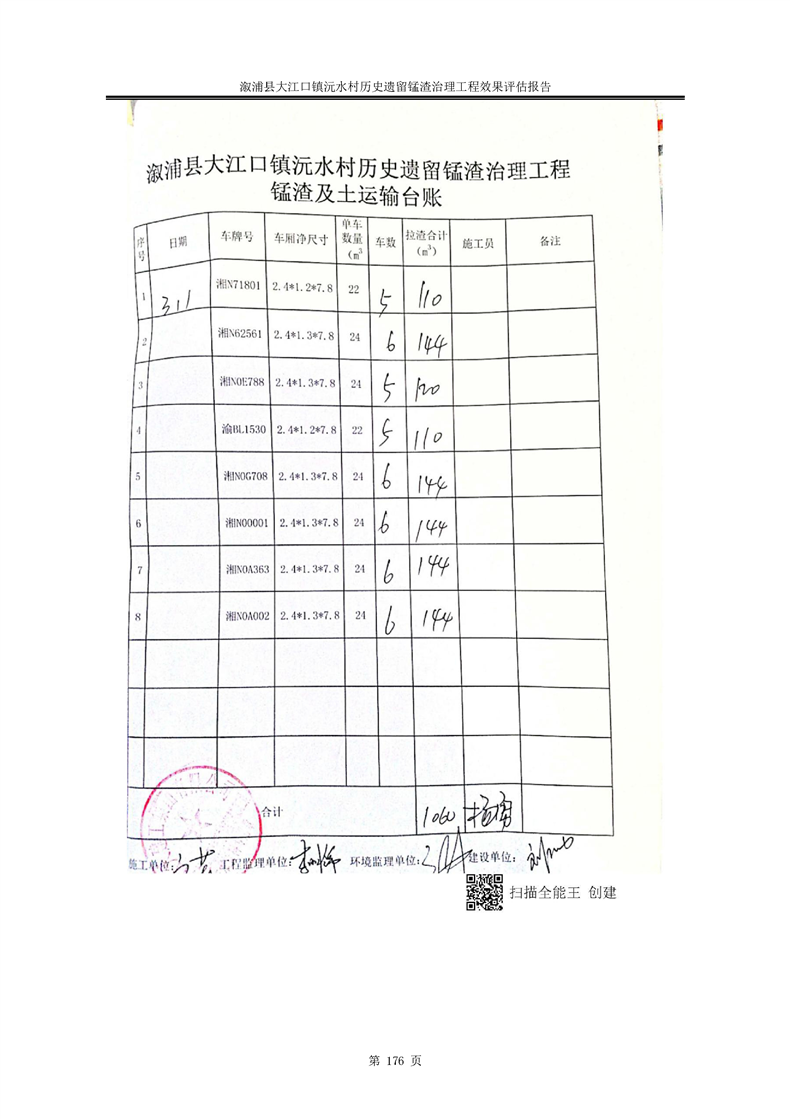 溆浦县大江口镇沅水村历史遗留锰渣治理工程效果评估报告
溆浦县大江口镇沅水村历史遗留锰渣治理工程
锰渣及土运输台账
序号 日期 车牌号 车厢净尺寸 单车数量(m³ 车数 拉渣合计(m³) 施工员 备注
1 3.1 湘N71801 2.4*1.2*7.8 22 5 110
2 湘N62561 2.4*1.3*7.8 24 6 144
3 湘N0E788 2.4*1.3*7.8 24 5 120
4 渝BL1530 2.4*1.2*7.8 22 5 110
5 湘N0G708 2.4*1.3*7.8 24 6 144
6 湘N00001 2.4*1.3*7.8 24 6 144
7 湘N0A363 2.4*1.3*7.8 24 6 144
8 湘N0A002 2.4*1.3*7.8 24 6 144
合计 1060
施工单位: 工程监理单位: 环境监理单位: 建设单位:
扫描全能王 创建
第 176 页